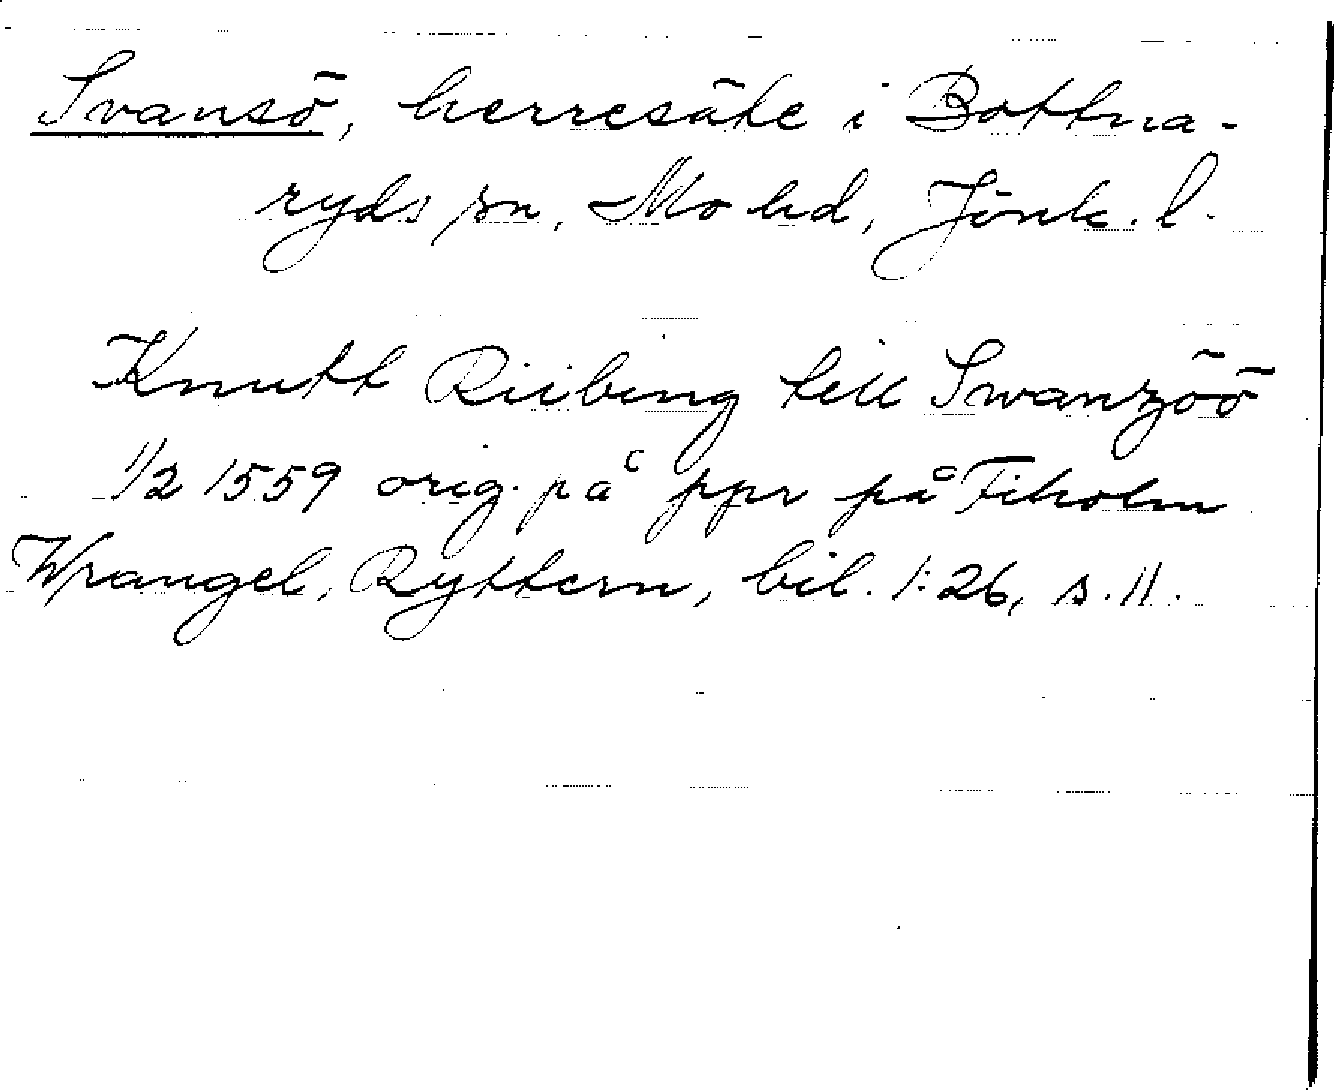 Svansö, herresäte i Bottna-
ryds sn, Mo hd, Jönk. l.
Knutt Riibing till Swanzöö
1/2 1559 orig. på ppr på Fiholm
Wrangel, Ryttern, bil. 1:26, s. 11.